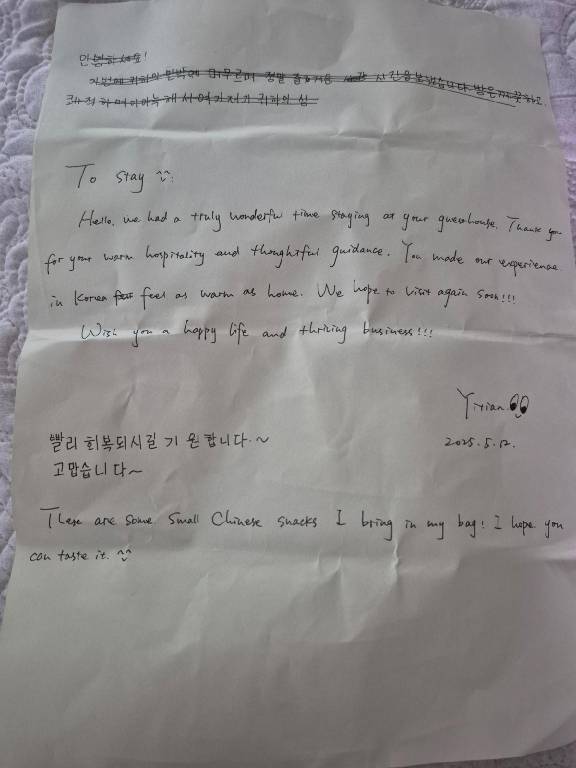 안녕하세요!
이번에 귀하의 민박에 머무르며 정말 즐거운
To stay ^^:
Hello, we had a truly wonderful time staying at your guesthouse. Thank you
for your warm hospitality and thoughtful guidance. You made our experience
in Korea feel as warm as home. We hope to visit again soon!!!
Wish you a happy life and thriving business!!!
Yixian
2025.5.12.
빨리 회복되시길 기원합니다.~
고맙습니다~
These are some small Chinese snacks I bring in my bag! I hope you
can taste it. ^^